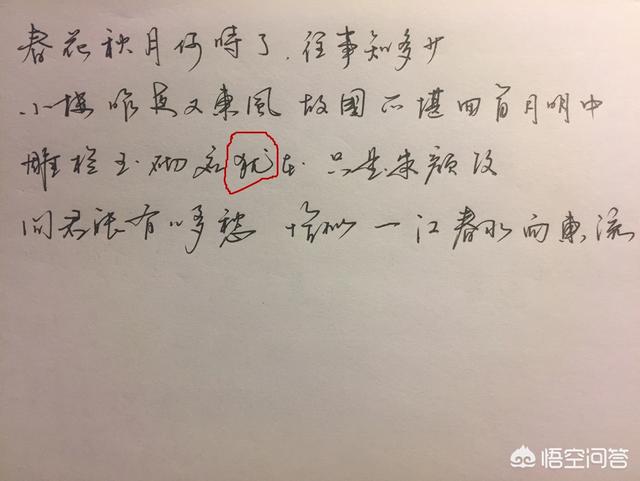 春花秋月何時了.往事知多少
小楼昨夜又東風 故國不堪回首月明中
雕栏玉砌应犹在.只是朱颜改
问君能有几多愁 恰似一江春水向東流
悟空问答